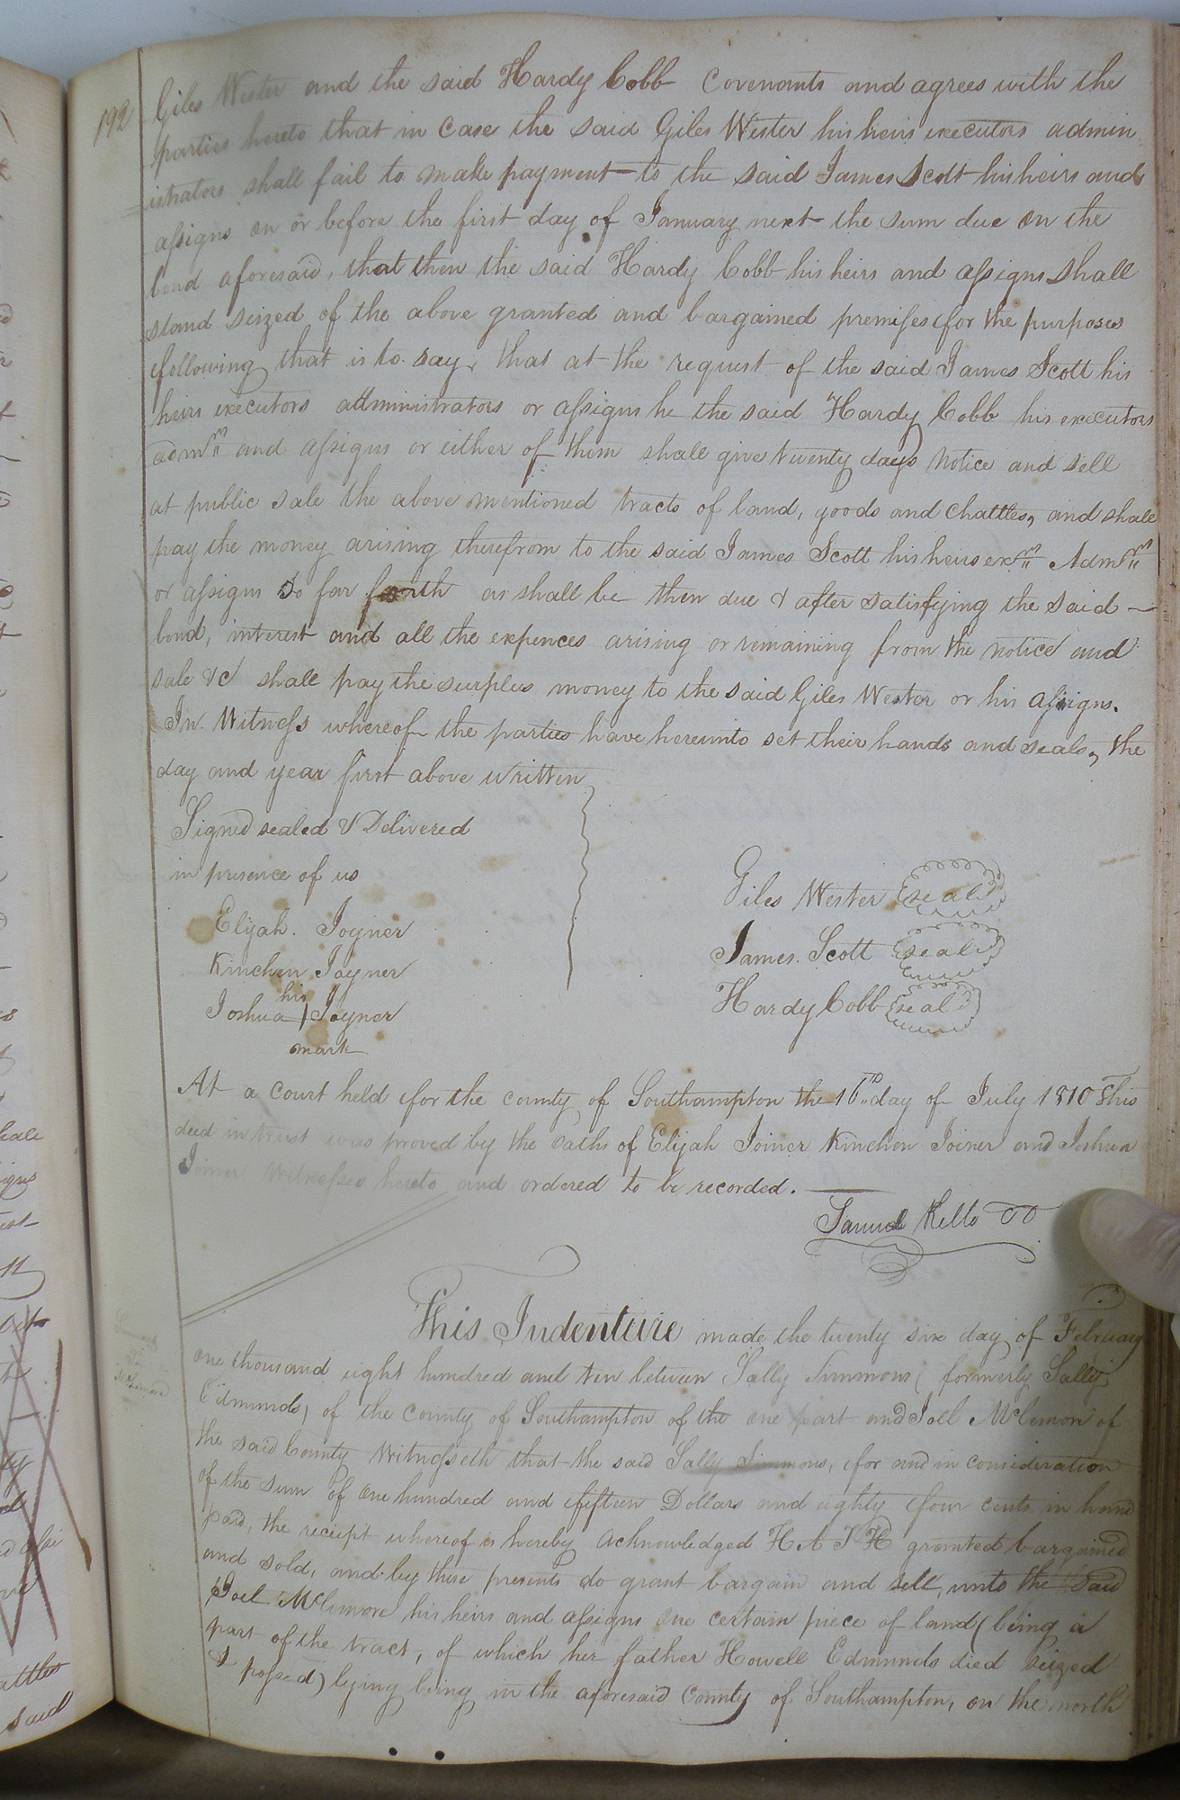 192
Giles Wester and the said Hardy Cobb Covenants and agrees with the
parties hereto that in case the said Giles Wester his heirs executors admin
istrators shall fail to make payment to the said James Scott his heirs and
assigns on or before the first day of January next the sum due on the
bond aforesaid, that then the said Hardy Cobb his heirs and assigns shall
stand seized of the above granted and bargained premises for the purposes
following that is to say, that at the request of the said James Scott his
heirs executors administrators or assigns he the said Hardy Cobb his executors
admrs and assigns or either of them shall give twenty days notice and sell
at public sale the above mentioned tracts of land, goods and Chattles, and shall
pay the money arising therefrom to the said James Scott his heirs exrs Admrs
or assigns so far forth as shall be then due & after satisfying the said
bond, interest and all the expences arising or remaining from the notice and
sale &c shall pay the surplus money to the said Giles Wester or his assigns.
In Witness whereof the parties have hereunto set their hands and seals, the
day and year first above written
Signed sealed & Delivered
in presence of us
Elijah. Joyner
Kinchen Joyner
his
Joshua Joyner
mark
Giles Wester seal
James. Scott seal
Hardy Cobb seal
At a Court held for the county of Southampton the 16th day of July 1810 This
deed in trust was proved by the oaths of Elijah Joiner Kinchen Joiner and Joshua
Joiner Witnesses hereto and ordered to be recorded.
Samuel Kello
This Indenture made the twenty six day of February
one thousand eight hundred and ten between Sally Simmons ( formerly Sally
Edmunds) of the County of Southampton of the one part and Joel McLemore of
the said County Witnesseth that the said Sally Simmons, for and in consideration
of the sum of One hundred and fifteen Dollars and eighty four cents in hand
paid, the receipt whereof is hereby acknowledged HATH granted bargained
and sold, and by these presents do grant bargain and sell, unto the said
Joel McLemore his heirs and assigns one certain piece of land (being a
part of the tract, of which her father Howell Edmunds died seized
& possed) lying being in the aforesaid County of Southampton, on the north